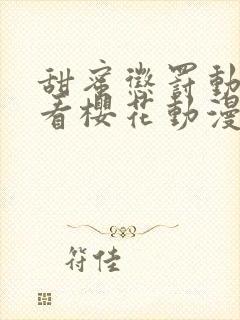 甜蜜懲罰動
看櫻花動漫
符佳